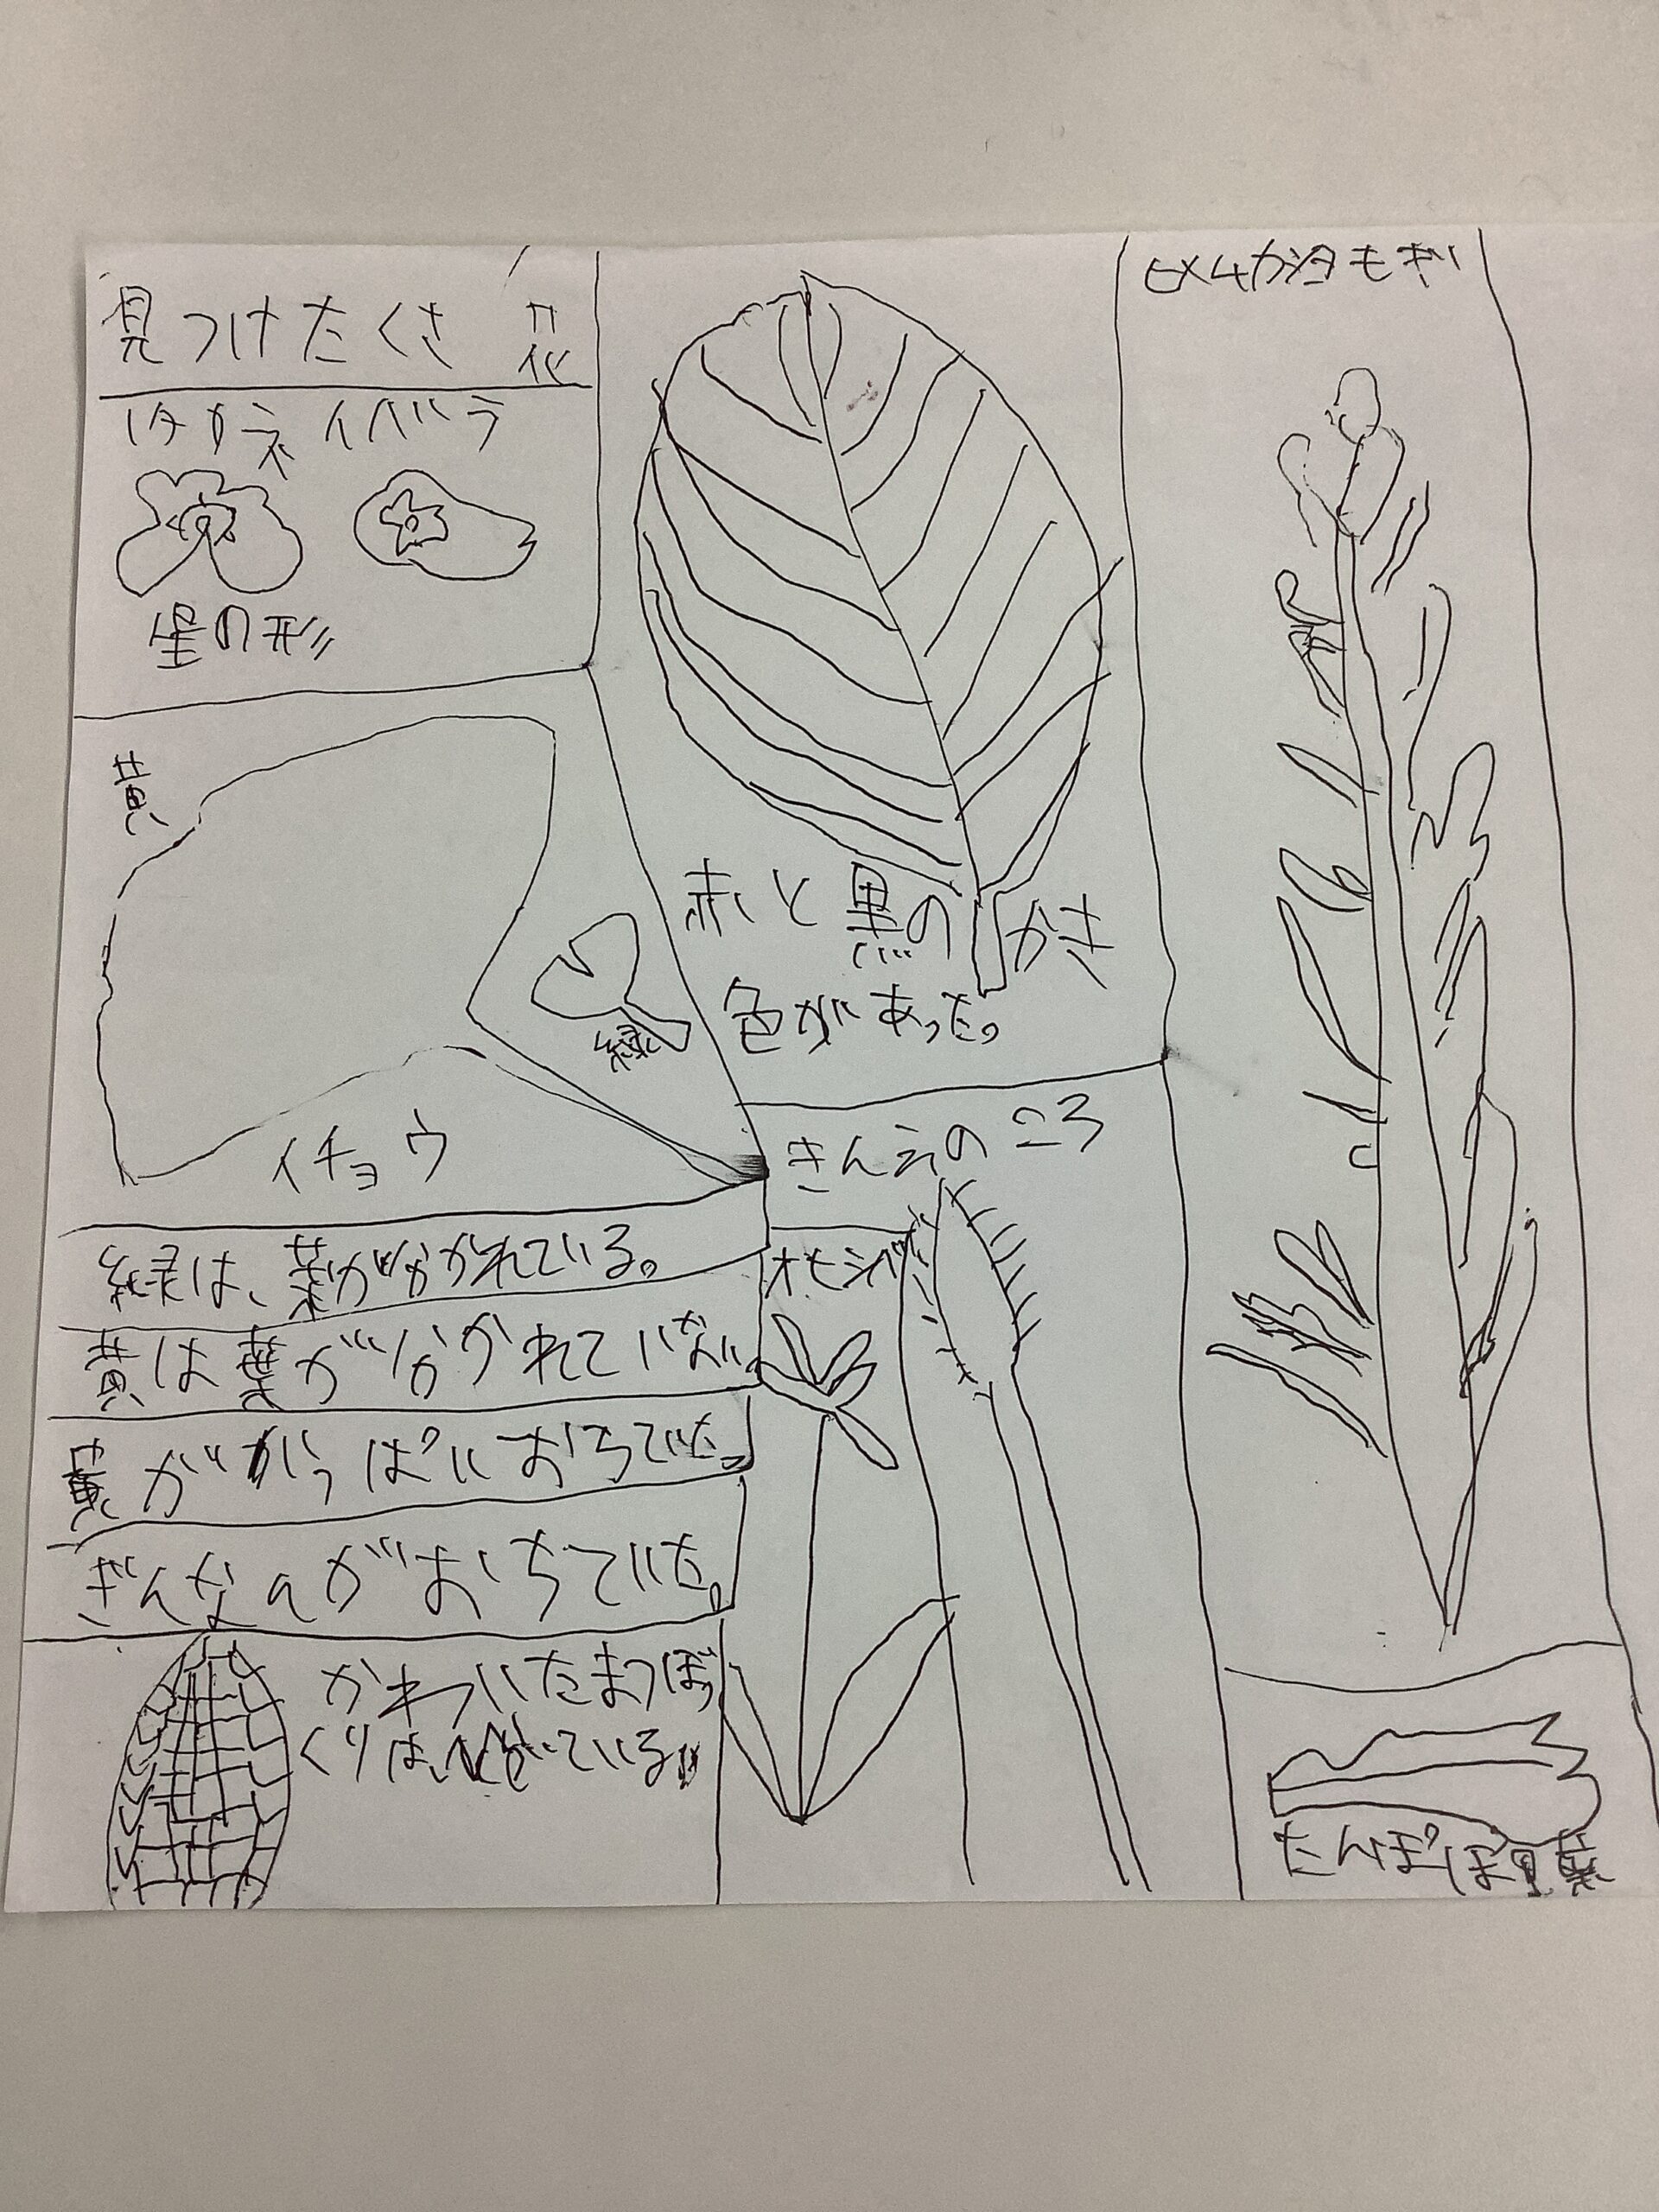 見つけたくさ 花
タカネイバラ
星の形
黄
緑
イチョウ
緑は、葉がわかれている。
黄は葉がわかれていない。
黄がいっぱいおちていた。
ぎんなんがおちていた。
かわいたまつぼっ
くりは
ている。
赤と黒の
かき
色があった。
きんえのころ
オヒシバ
ヒメムカシヨモギ
たんぽぽの葉